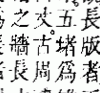 長版者
五堵爲
丈古周
之牆長